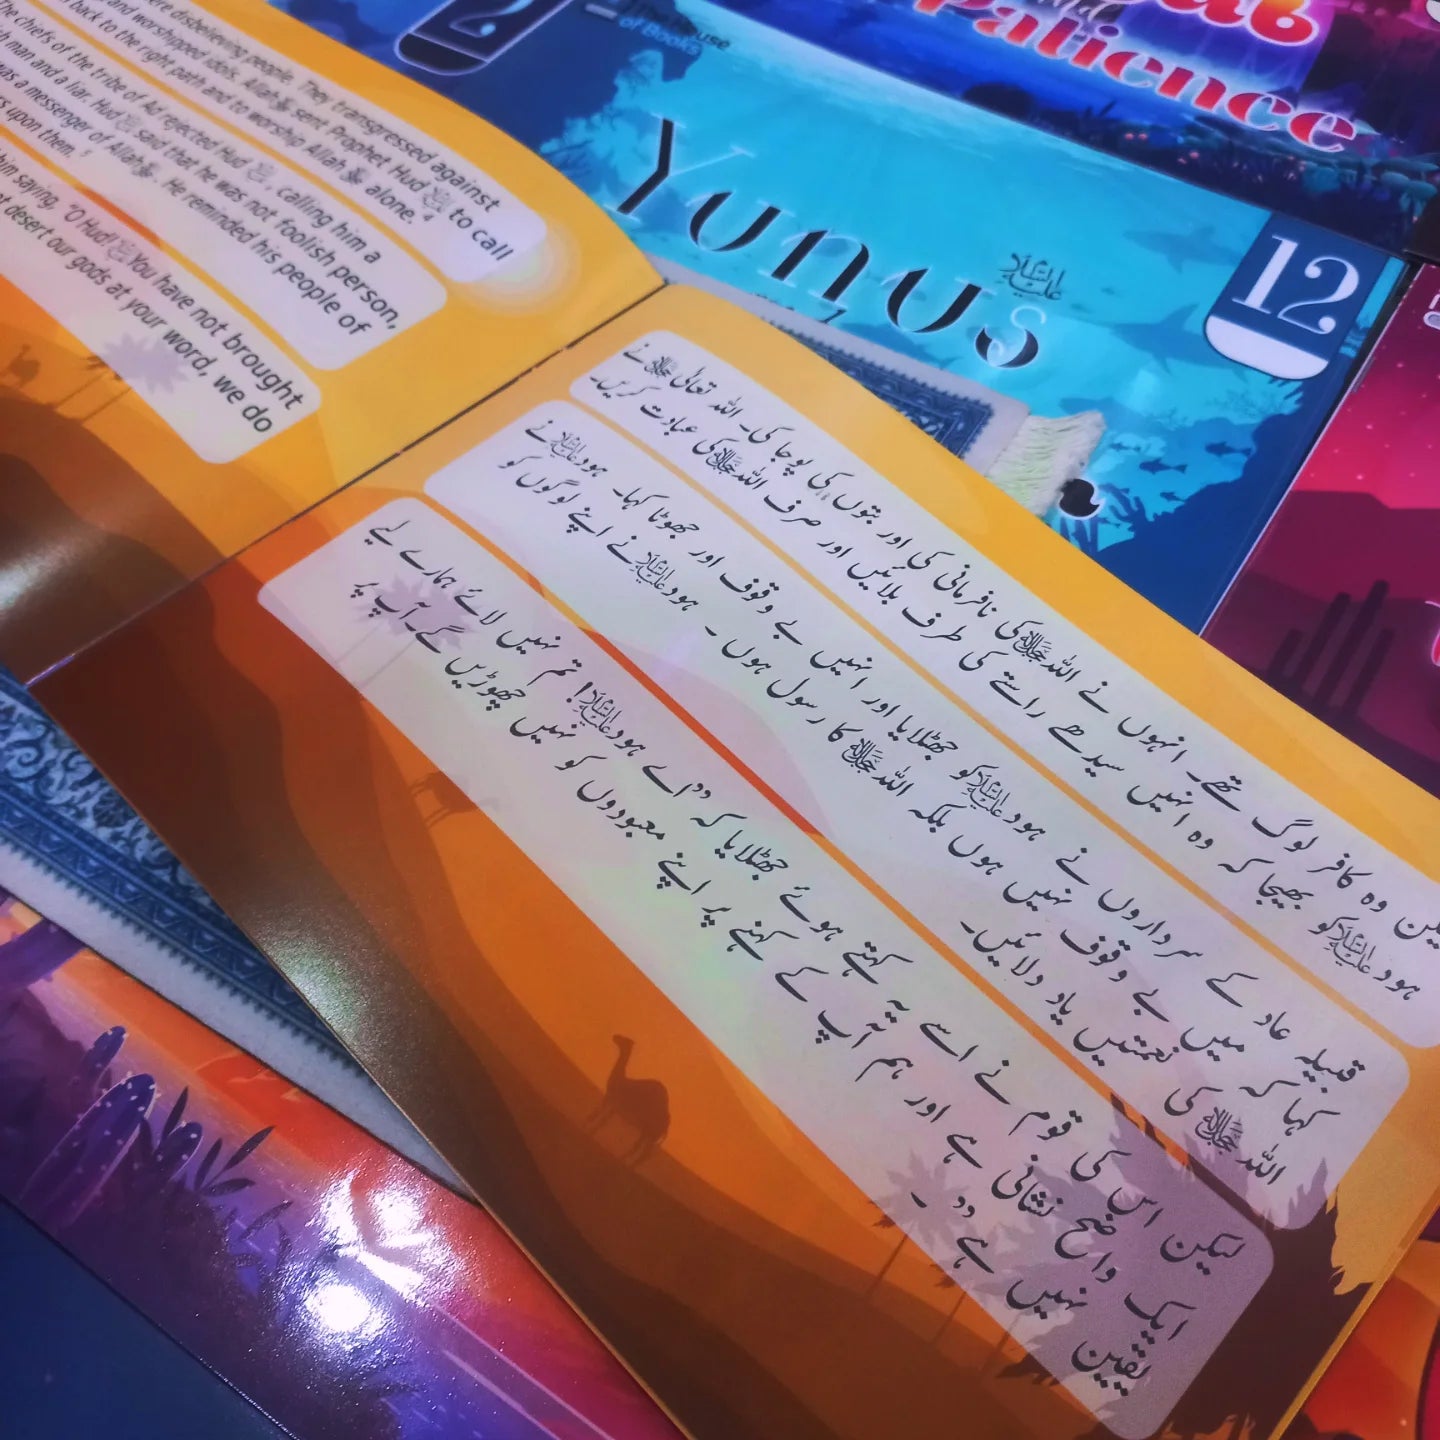 were disbelieving people. They transgressed against
and worshipped idols. Allah ﷻ sent Prophet Hud عليه السلام to call
back to the right path and to worship Allah ﷻ alone. 4
The chiefs of the tribe of Ad rejected Hud عليه السلام, calling him a
man and a liar. Hud عليه السلام said that he was not foolish person,
was a messenger of Allah ﷻ. He reminded his people of
upon them. 5
him saying, "O Hud! عليه السلام You have not brought
desert our gods at your word, we do
وہ کافر لوگ تھے۔ انہوں نے اللہ ﷻ کی نافرمانی کی اور بتوں کی پوجا کی۔ اللہ تعالیٰ ﷻ نے
ہود علیہ السلام کو بھیجا کہ وہ انہیں سیدھے راستے کی طرف بلائیں اور صرف اللہ ﷻ کی عبادت کریں۔
قبیلہ عاد کے سرداروں نے ہود علیہ السلام کو جھٹلایا اور انہیں بے وقوف اور جھوٹا کہا۔ ہود علیہ السلام نے
کہا کہ میں بے وقوف نہیں ہوں بلکہ اللہ ﷻ کا رسول ہوں۔ ہود علیہ السلام نے اپنے لوگوں کو
اللہ ﷻ کی نعمتیں یاد دلائیں۔
لیکن اس کی قوم نے اسے یہ کہتے ہوئے جھٹلایا کہ "اے ہود علیہ السلام! تم نہیں لائے ہمارے لیے
ایک واضح نشانی ہے اور ہم آپ کے کہنے پر اپنے معبودوں کو نہیں چھوڑیں گے۔ آپ پر
یقین نہیں ہے"۔
Yunus
علیہ السلام
12
of Books
Patience